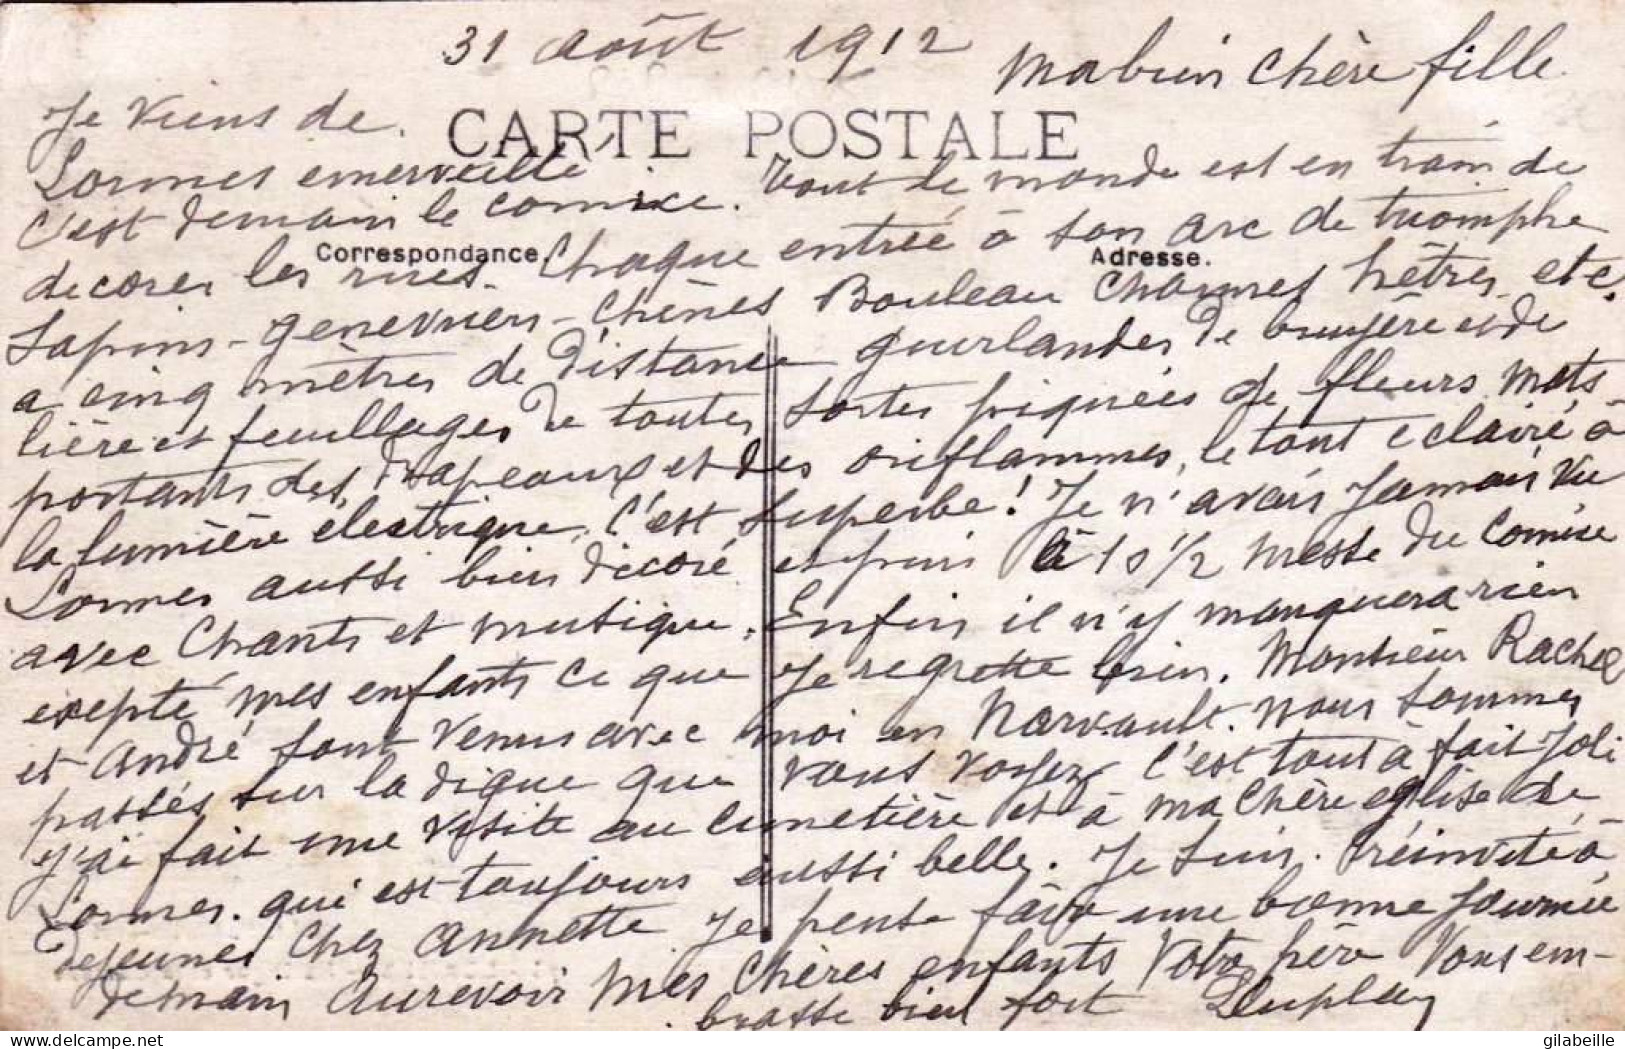 31 août 1912
Ma bien chère fille
Je viens de
CARTE POSTALE
Lormes emerveillé
c'est demain le comice. Tout le monde est en train de
Correspondance.
Adresse.
decorer les rues. Chaque entrée à son arc de triomphe
Sapins - genevriers - chênes Bouleau charmes hêtres etc.
a cinq mètres de distance guirlandes de bruyère et de
lière et feuillages de toutes sortes piquées de fleurs mats
portants des drapeaux et des oriflammes, le tout eclairé à
la lumière électrique, c'est superbe! Je n'avais jamais vu
Lormes aussi bien décoré et puis à 10 1/2 messe du comice
avec chants et musique. Enfin il n'y manquera rien
exepté mes enfants ce que je regrette bien. Monsieur Rachel
et André sont venus avec moi en Narvault. nous sommes
passés sur la digue que vous voyez c'est tout à fait joli
j'ai fait une visite au cimetière et à ma chère eglise de
Lormes. qui est toujours aussi belle. Je suis réinvité à
dejeuner chez Annette je pense faire une bonne journée
demain Aurevoir mes chères enfants Votre père Vous em-
brasse bien fort
gilabeille